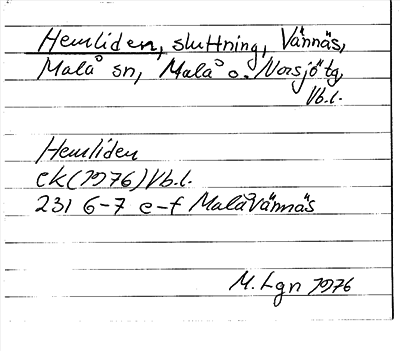 Hemliden, sluttning, Vännäs,
Malå sn, Malå o. Norsjö tg,
Vb.l.
Hemliden
ek(1976)Vb.l.
23I 6-7 e-f Malåvännäs
M. Lgn 1976